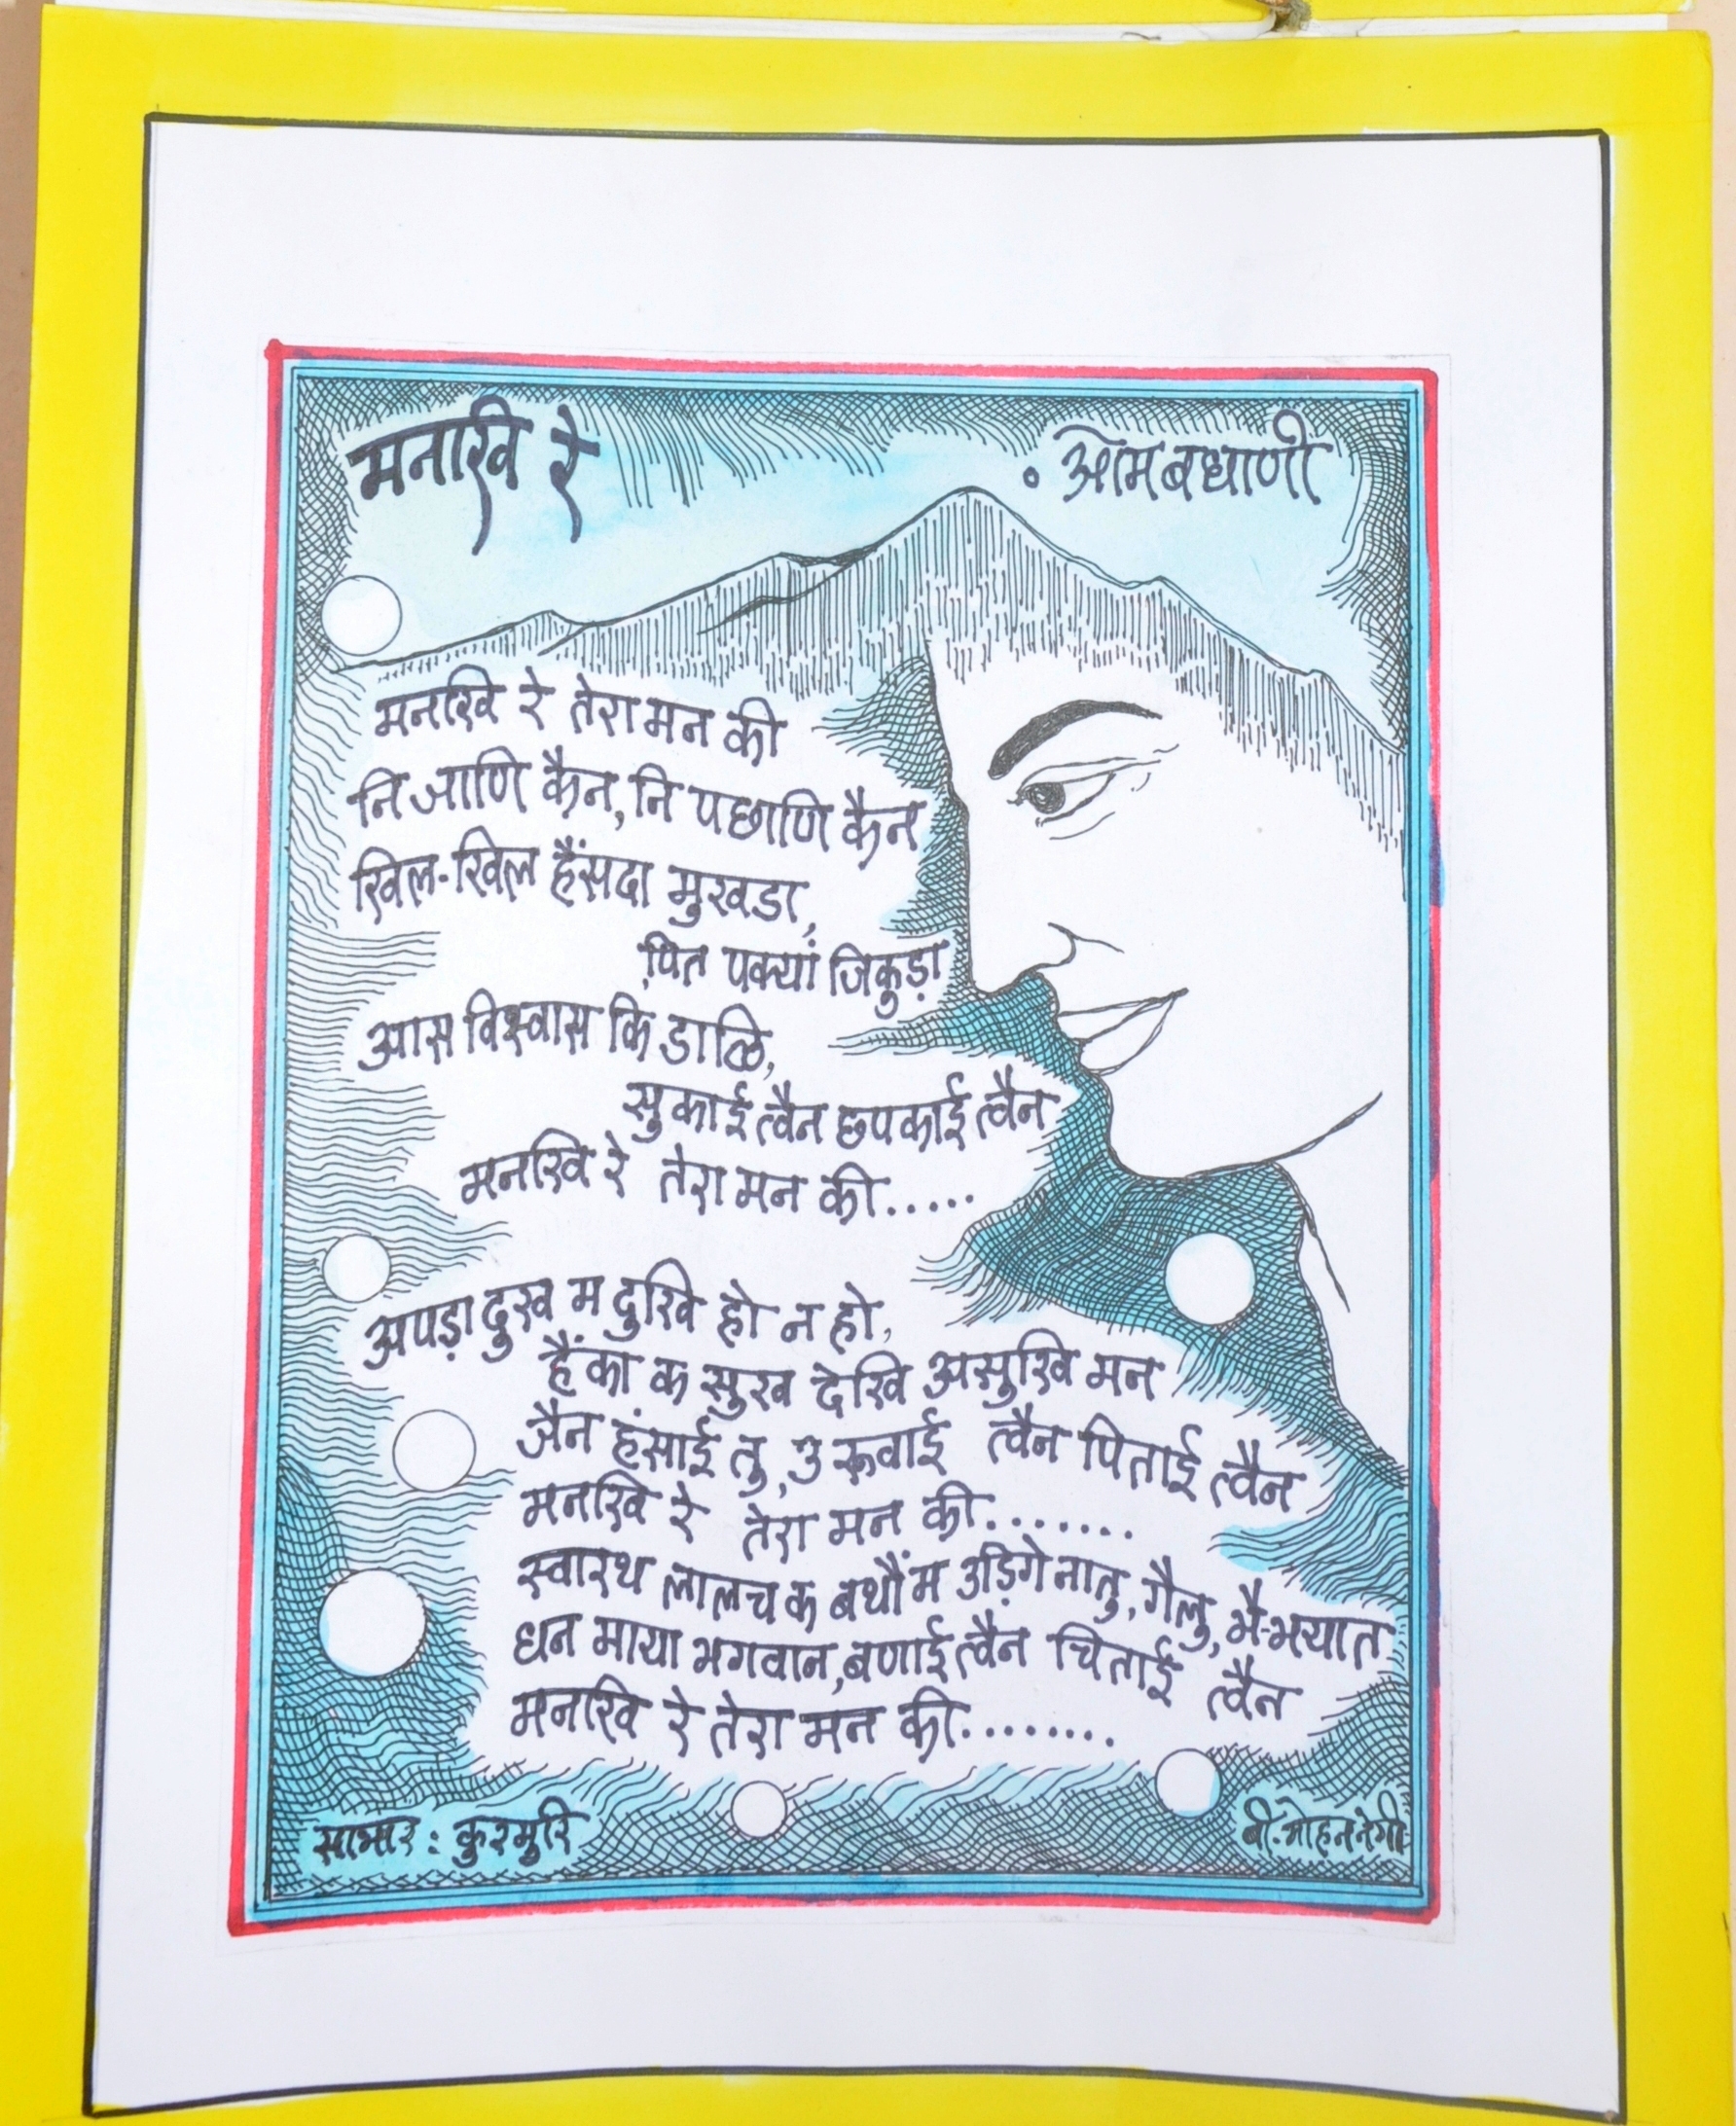 मनखि रे
• ओम बधाणी
मनखि रे तेरा मन की
नि जाणि कैन, नि पछाणि कैन
खिल-खिल हैंसदा मुखडा,
पित पक्यां जिकुड़ा
आस विश्वास कि डालि,
सुकाई त्वैन छपकाई त्वैन
मनखि रे तेरा मन की.....
अपड़ा दुख म दुखि हो न हो,
हैंका क सुख देखि असुखि मन
जैन हंसाई तु, उ रूवाई त्वैन पिताई त्वैन
मनखि रे तेरा मन की.......
स्वारथ लालच क बथौंम उड़िगे नातु, गैलु, भै-भयात
धन माया भगवान, बणाई त्वैन चिताई त्वैन
मनखि रे तेरा मन की........
साभार : कुरमुरि
बी. मोहन नेगी